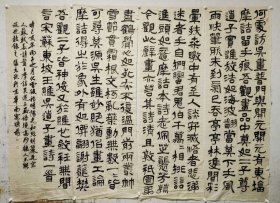 何處訪吳畫普門與開元開元有東塔
摩詰留手痕吾觀畫品中莫如二子尊
道子實雄放浩如海波翻當其下手風
雨快筆所未到氣已吞亭亭雙林間彩
暈扶桑暾中有至人談寂滅悟者悲涕
迷者手自捫蠻君鬼伯千萬萬相排競
進頭如黿摩詰本詩老佩芷襲芳蓀今
觀此壁畫亦若其詩清且敦祇園弟子
盡鶴骨心如死灰不復溫門前兩叢竹
雪節貫霜根交柯亂葉動無數一一皆
可尋其源吳生雖妙絕猶以畫工論
摩詰得之於象外有如仙翮謝籠樊
吾觀二子皆神俊又於維也斂衽無間
言宋蘇東坡王維吳道子畫詩一首